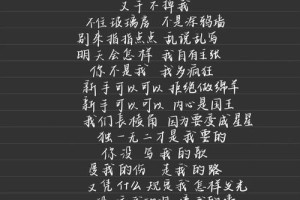 又于不掉我
不住玻璃房 不是涂鸦墙
别来指指点点 乱说乱写
明天会怎样 我自有主张
你不是我 我为疯狂
新手可以可以 拒绝做绵羊
新手可以可以 内心是国王
我们长棱角 因为要变成星星
独一无二才是我要的
你没 写我的歌
是我的伤 是我的路
又凭什么 规定我 怎样发光